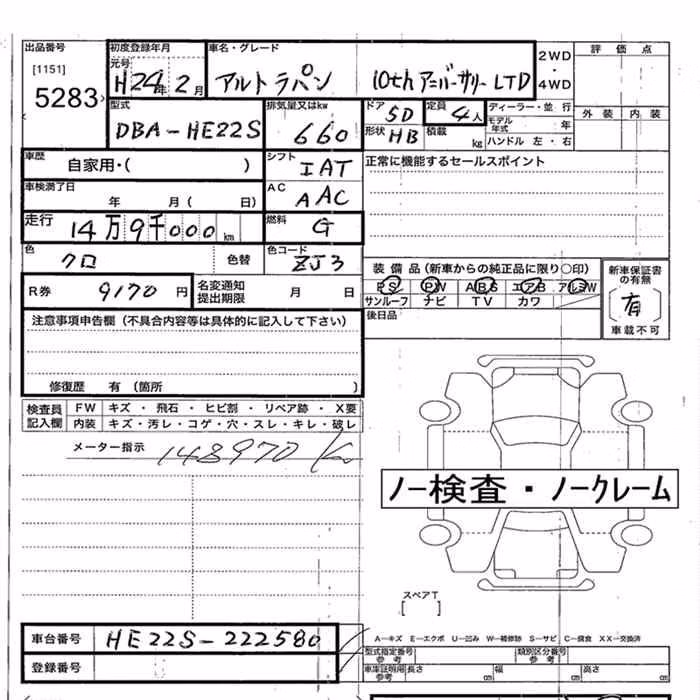 出品番号
[1151]
5283
初度登録年月
元号
H24年2月
車名・グレード
アルトラパン 10thアニバーサリーLTD
2WD
・
4WD
評価点
外装 内装
型式
DBA-HE22S
排気量又はkw
660
ドア 5D
形状 HB
定員 4人
積載 kg
ディーラー・並行
モデル年式 年
ハンドル 左・右
車歴
自家用・( )
シフト
IAT
正常に機能するセールスポイント
車検満了日
年 月( 日)
AC
AAC
走行
14万9千000km
燃料
G
色
クロ
色替
色コード
ZJ3
装備品(新車からの純正品に限り○印)
PS PW ABS エアB アルミW
サンルーフ ナビ TV カワ
新車保証書の有無
有
車載不可
R券 9170円
名変通知
提出期限
月 日
後日品
注意事項申告欄(不具合内容等は具体的に記入して下さい)
修復歴 有(箇所 )
検査員
記入欄
FW キズ・飛石・ヒビ割・リペア跡・X要
内装 キズ・汚レ・コゲ・穴・スレ・キレ・破レ
メーター指示 148970 km
ノー検査・ノークレーム
スペアT
[ ]
車台番号 HE22S-222580
登録番号
A-キズ E-エクボ U-凹み W-補修跡 S-サビ C-腐食 XX-交換済
型式指定番号
参考
類別区分番号
参考
車庫証明用
参考
長さ cm 幅 cm 高さ cm